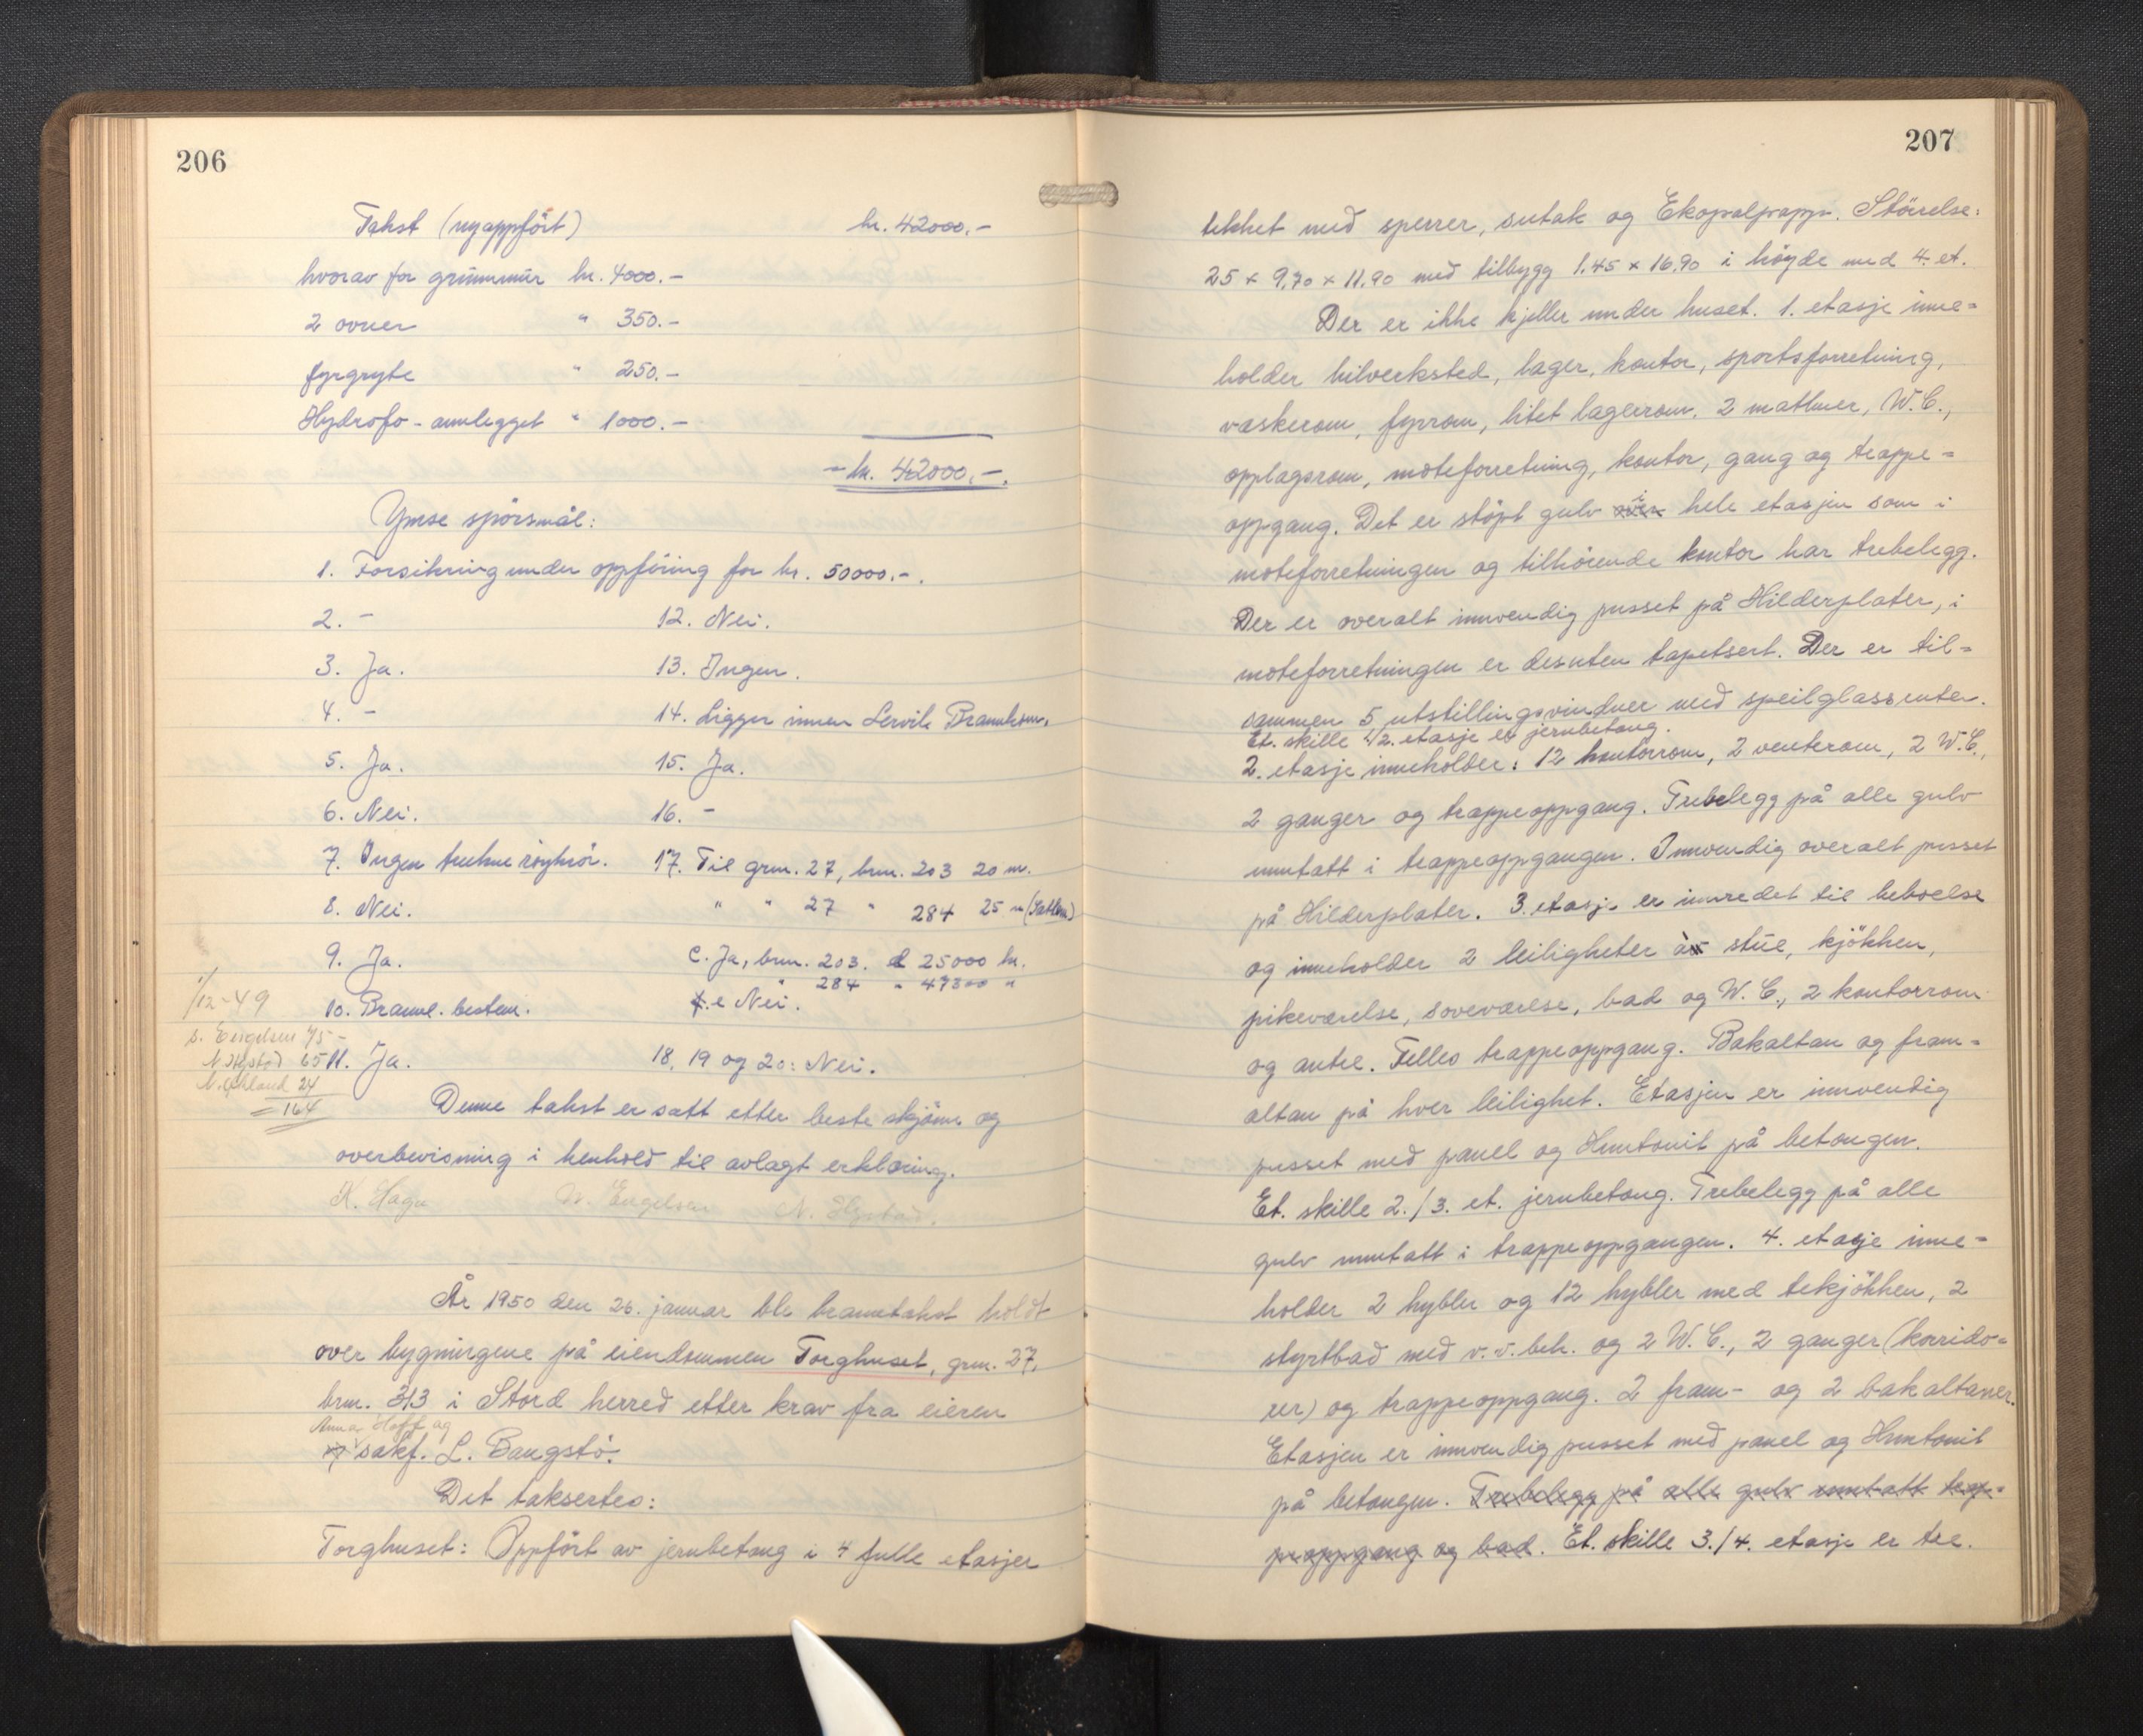 206
Takst (nyoppført) kr. 42000.-
hvorav for grunnmur kr. 4000.-
2 ovner " 350.-
fyrgryte " 250.-
Hydrofo-annlegget " 1000.-
kr. 42000.-.
Ymse spörsmål:
1. Forsikring under oppföring for kr. 50000.-.
2. - 12. Nei.
3. Ja. 13. Ingen.
4. - 14. Ligger innen Lervik Brannkom.
5. Ja. 15. Ja.
6. Nei. 16. -
7. Ingen trekne röykrör. 17. Til grnr. 27, brnr. 203 20 m.
8. Nei. " " 27 " 284 25 "
9. Ja. C. Ja, brnr. 203. d 25000 kr.
" 284 " 47300 "
1/12-49 10. Brannl. bestem. e Nei.
S. Engelsen 75 -
N. Hystad 65 11. Ja. 18, 19 og 20: Nei.
24
= 164
Denne takst er satt etter beste skjönn og
overbevisning i henhold til avlagt erklæring.
K. Haga Engelsen N. Hystad.
År 1950 den 26. januar ble branntakst holdt
over bygningene på eiendommen Torghuset, grnr. 27,
brnr. 313 i Stord herred etter krav fra eieren
Anna Hoff og
sakf. L. Bangstö.
Det taksertes:
Torghuset: Oppfört av jernbetong i 4 fulle etasjer
207
tekket med sperrer, sutak og Ekopalpapp. Störrelse:
25 x 9,70 x 11,90 med tilbygg 1.45 x 16,90 i höyde med 4. et.
Der er ikke kjeller under huset. 1. etasje inne=
holder bilverksted, lager, kontor, sportsforretning,
vaskerom, fyrrom, litet lagerrom. 2 matbuer, W.C.,
opplagsrom, moteforretning, kontor, gang og trappe=
oppgang. Det er stöpt gulv over i hele etasjen som i
moteforretningen og tilhörende kontor har trebelegg.
Der er overalt innvendig pusset på Hilderplater, i
moteforretningen er desuten tapetsert. Der er til=
sammen 5 utstillingsvinduer med speilglassruter.
Et. skille 1/2. etasje er jernbetong.
2. etasje inneholder: 12 kontorrom, 2 venterom, 2 W.C.,
2 ganger og trappeoppgang. Trebelegg på alle gulv
unntatt i trappeoppgangen. Innvendig overalt pusset
på Hilderplater. 3. etasje er innredet til beboelse
og inneholder 2 leiligheter à stue, kjökken,
pikeværelse, soveværelse, bad og W.C., 2 kontorrom
og antre. Felles trappeoppgang. Bakaltan og fram=
altan på hver leilighet. Etasjen er innvendig
pusset med panel og Huntonit på betongen.
Et. skille 2./3. et. jernbetong. Trebelegg på alle
gulv unntatt i trappeoppgangen. 4. etasje inne=
holder 2 hybler og 12 hybler med tekjökken, 2
styrtbad med v.v. beh. og 2 W.C., 2 ganger (korrido=
rer) og trappeoppgang. 2 fram- og 2 bakaltaner.
Etasjen er innvendig pusset med panel og Huntonit
på betongen. Trebelegg på alle gulv unntatt trap=
peoppgang og bad. Et. skille 3./4. etasje er tre.